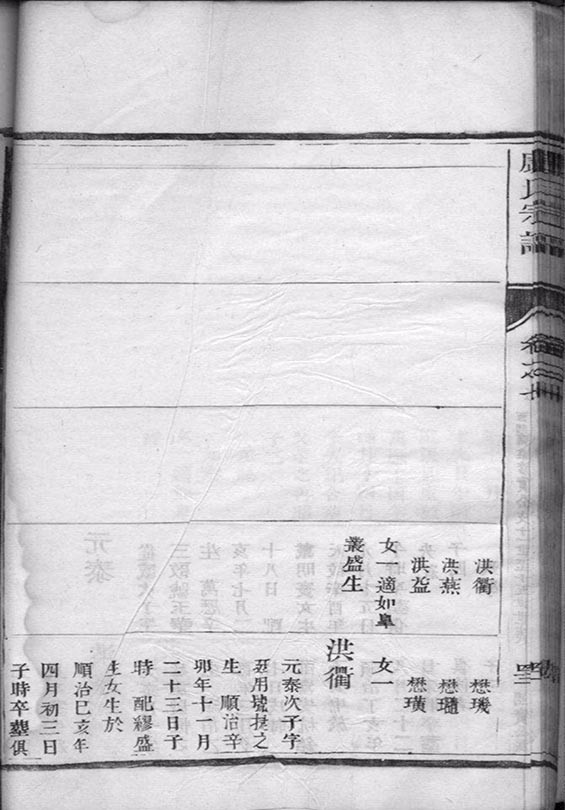 氏宗譜
卷之
洪衢
洪燕
洪益
女一適如臯
叢盛生
懋璣
懋璶
懋璜
女一
洪衢
元泰次子字
用號挺之
生 順治辛
卯年十一月
二十三日子
時 配繆盛
生女生於
順治己亥年
四月初三日
子時卒塟俱
元泰